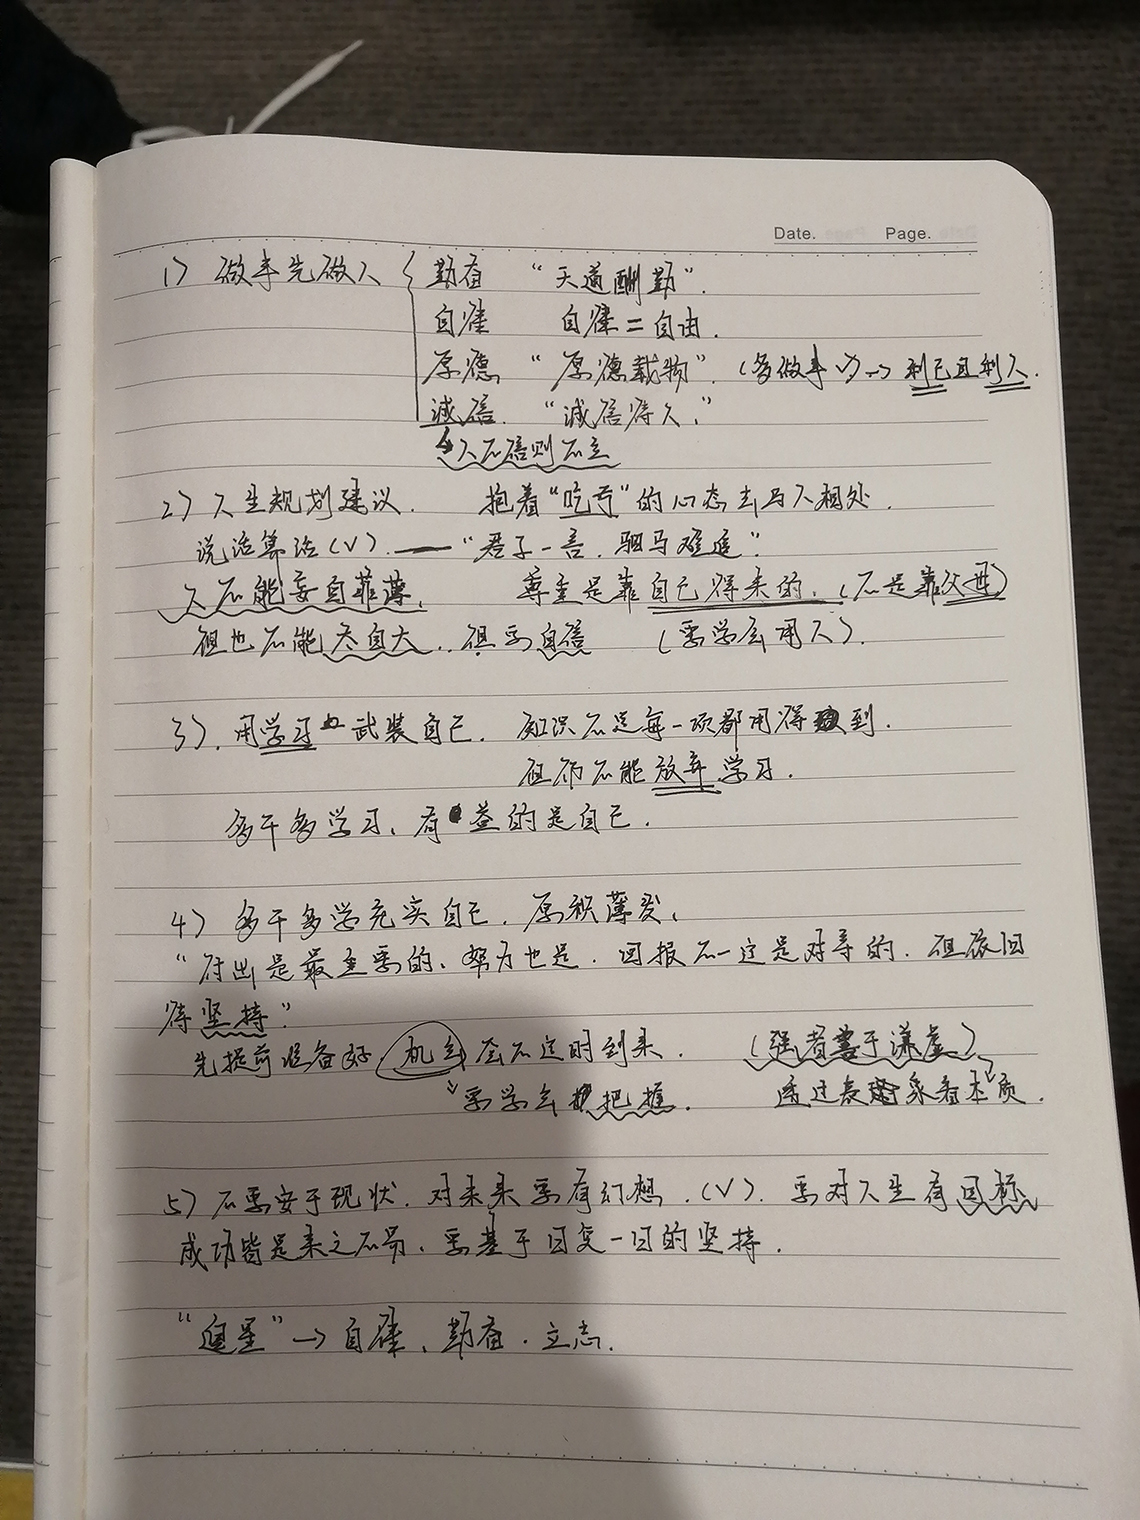 Date. Page.
1) 做事先做人 { 勤奋 “天道酬勤”.
自律 自律=自由.
厚德 “厚德载物”. (多做事 √) → 利己且利人.
诚信. “诚信待人.”
↳人不信则不立
2) 人生规划建议. 抱着“吃亏”的心态去与人相处.
说话算话(√). — “君子一言.驷马难追”.
人不能妄自菲薄. 尊重是靠自己得来的.(不是靠父母)
但也不能夭自大..但要自信 (要学会用人).
3).用学习 武装自己. 知识不是每一项都用得到.
但而不能放弃学习.
多干多学习、有益的是自己.
4) 多干多学充实自己.厚积薄发、
“付出是最重要的、努力也是.回报不一定是对等的.但依旧
得坚持”
先提前准备好,机会会不定时到来. (强者善于谦虚)
↘要学会把握. 透过表象看本质.
5) 不要安于现状.对未来要有幻想.(√).要对人生有目标
成功皆是来之不易、要基于日复一日的坚持.
“追星”→自律、勤奋.立志.